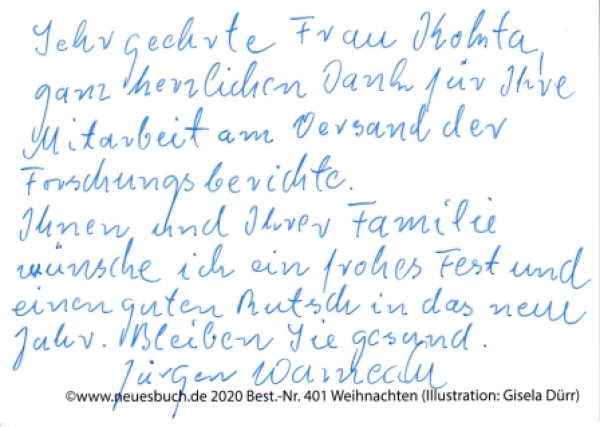 Sehr geehrte Frau Kohnta,
ganz herzlichen Dank für Ihre
Mitarbeit am Versand der
Forschungsberichte.
Ihnen und Ihrer Familie
wünsche ich ein frohes Fest und
einen guten Rutsch in das neue
Jahr. Bleiben Sie gesund.
Jürgen Warnecke
©www.neuesbuch.de 2020 Best.-Nr. 401 Weihnachten (Illustration: Gisela Dürr)